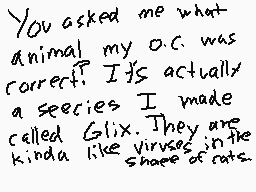 You asked me what
animal my o.c. was
correct? It's actually
a seecies I made
called Glix. They are
kinda like viruses in the
shaee of cats.